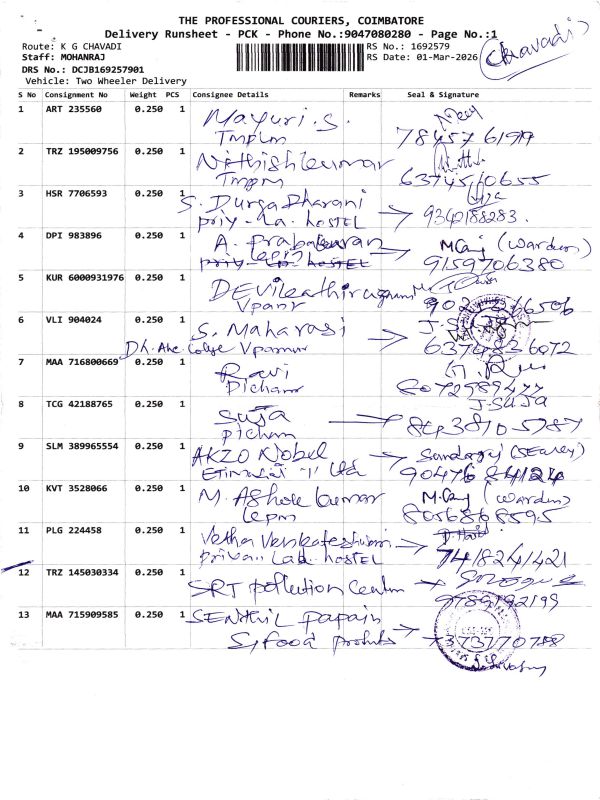 THE PROFESSIONAL COURIERS, COIMBATORE
Delivery Runsheet - PCK - Phone No.:9047080280 - Page No.:1
Route: K G CHAVADI
RS No.: 1692579
Chavadi
Staff: MOHANRAJ
RS Date: 01-Mar-2026
DRS No.: DCJB169257901
Vehicle: Two Wheeler Delivery
S No Consignment No Weight PCS Consignee Details Remarks Seal & Signature
1 ART 235560 0.250 1 Mayuri. S.
Tmplm 78457 6199
2 TRZ 195009756 0.250 1 Nithishkumar
Tmpm 6374510655
3 HSR 7706593 0.250 1 S. Durga Dharani
priy. La. hostel → 9340188283.
4 DPI 983896 0.250 1 A. Prabakaran → (Warden)
9159706380
5 KUR 6000931976 0.250 1
Vpanr
6 VLI 904024 0.250 1 S. Maharasi →
7 MAA 716800669 0.250 1 Ravi
Picham 8072989477
8 TCG 42188765 0.250 1 Suja J. Suja
Pichm → 8438705787
9 SLM 389965554 0.250 1 AKZO Nobel →
Ltd 90476 84124
10 KVT 3528066 0.250 1 M. Ashok kumar (warden)
Lepm 8056868595
11 PLG 224458 0.250 1 →
Lab. hostel 7418241421
12 TRZ 145030334 0.250 1 SRT pollution →
9789192199
13 MAA 715909585 0.250 1 SENTHIL papain
food products → 7373770788